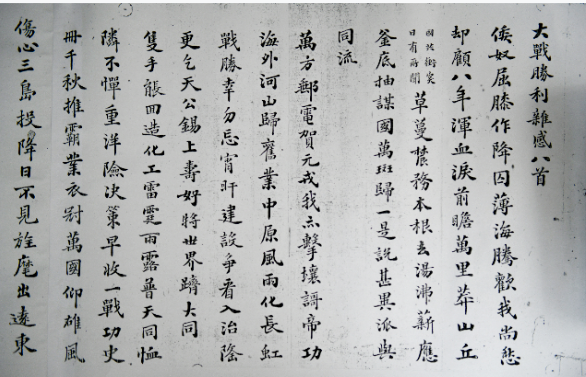 大戰勝利雜感八首
倭奴屈膝作降囚薄海騰歡我尚愁
却顧八年渾血淚前瞻萬里莽山丘
衝突
日有所聞
草蔓農務本根去湯沸薪應
釜底抽謀國萬斑歸一是說甚異派與
同流
萬方郵電賀元戎我亦擊壤謌帝功
海外河山歸舊業中原風雨化長虹
戰勝幸勿忘宵旰建設爭看入治隆
更乞天公錫上壽好將世界躋大同
隻手能回造化工雷霆雨露普天同恤
隣不憚重洋險决策早收一戰功史
冊千秋推霸業衣冠萬國仰雄風
傷心三島投降日不見旌麾出遼東